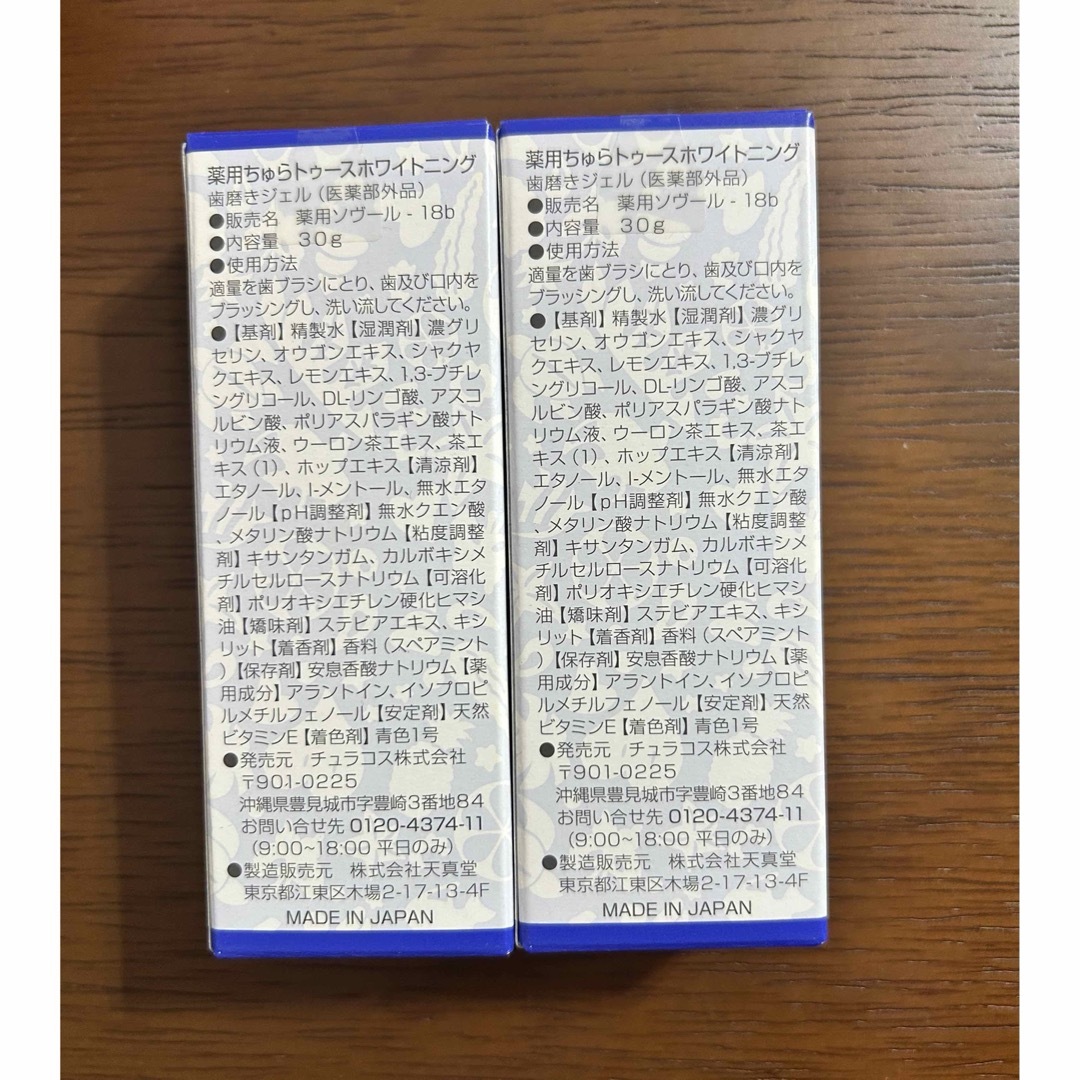 薬用ちゅらトゥースホワイトニング
歯磨きジェル（医薬部外品）
●販売名　薬用ソヴール - 18b
●内容量　30g
●使用方法
適量を歯ブラシにとり、歯及び口内を
ブラッシングし、洗い流してください。
●【基剤】精製水【湿潤剤】濃グリ
セリン、オウゴンエキス、シャクヤ
クエキス、レモンエキス、1,3-ブチレ
ングリコール、DL-リンゴ酸、アスコ
ルビン酸、ポリアスパラギン酸ナト
リウム液、ウーロン茶エキス、茶エ
キス（1）、ホップエキス【清涼剤】
エタノール、l-メントール、無水エタ
ノール【pH調整剤】無水クエン酸
、メタリン酸ナトリウム【粘度調整
剤】キサンタンガム、カルボキシメ
チルセルロースナトリウム【可溶化
剤】ポリオキシエチレン硬化ヒマシ
油【矯味剤】ステビアエキス、キシ
リット【着香剤】香料（スペアミント
）【保存剤】安息香酸ナトリウム【薬
用成分】アラントイン、イソプロピ
ルメチルフェノール【安定剤】天然
ビタミンE【着色剤】青色1号
●発売元　チュラコス株式会社
〒901-0225
沖縄県豊見城市字豊崎3番地84
お問い合せ先 0120-4374-11
(9:00~18:00 平日のみ)
●製造販売元　株式会社天真堂
東京都江東区木場2-17-13-4F
MADE IN JAPAN
薬用ちゅらトゥースホワイトニング
歯磨きジェル（医薬部外品）
●販売名　薬用ソヴール - 18b
●内容量　30g
●使用方法
適量を歯ブラシにとり、歯及び口内を
ブラッシングし、洗い流してください。
●【基剤】精製水【湿潤剤】濃グリ
セリン、オウゴンエキス、シャクヤ
クエキス、レモンエキス、1,3-ブチレ
ングリコール、DL-リンゴ酸、アスコ
ルビン酸、ポリアスパラギン酸ナト
リウム液、ウーロン茶エキス、茶エ
キス（1）、ホップエキス【清涼剤】
エタノール、l-メントール、無水エタ
ノール【pH調整剤】無水クエン酸
、メタリン酸ナトリウム【粘度調整
剤】キサンタンガム、カルボキシメ
チルセルロースナトリウム【可溶化
剤】ポリオキシエチレン硬化ヒマシ
油【矯味剤】ステビアエキス、キシ
リット【着香剤】香料（スペアミント
）【保存剤】安息香酸ナトリウム【薬
用成分】アラントイン、イソプロピ
ルメチルフェノール【安定剤】天然
ビタミンE【着色剤】青色1号
●発売元　チュラコス株式会社
〒901-0225
沖縄県豊見城市字豊崎3番地84
お問い合せ先 0120-4374-11
(9:00~18:00 平日のみ)
●製造販売元　株式会社天真堂
東京都江東区木場2-17-13-4F
MADE IN JAPAN